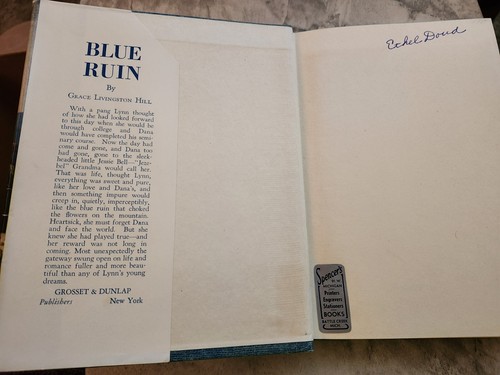 BLUE
RUIN
By
GRACE LIVINGSTON HILL
With a pang Lynn thought
of how she had looked forward
to this day when she would be
through college and Dana
would have completed his semi-
nary course. Now the day had
come and gone, and Dana too
had gone, gone to the sleek-
headed little Jessie Bell—"Jeze-
bel" Grandma would call her.
That was life, thought Lynn,
everything was sweet and pure,
like her love and Dana's, and
then something impure would
creep in, quietly, imperceptibly,
like the blue ruin that choked
the flowers on the mountain.
Heartsick, she must forget Dana
and face the world. But she
knew she had played true—and
her reward was not long in
coming. Most unexpectedly the
gateway swung open on life and
romance fuller and more beau-
tiful than any of Lynn's young
dreams.
GROSSET & DUNLAP
Publishers New York
Ethel Doud
Spencer's
MICHIGAN
Printers
Engravers
Stationers
BOOKS
BATTLE CREEK
MICH.